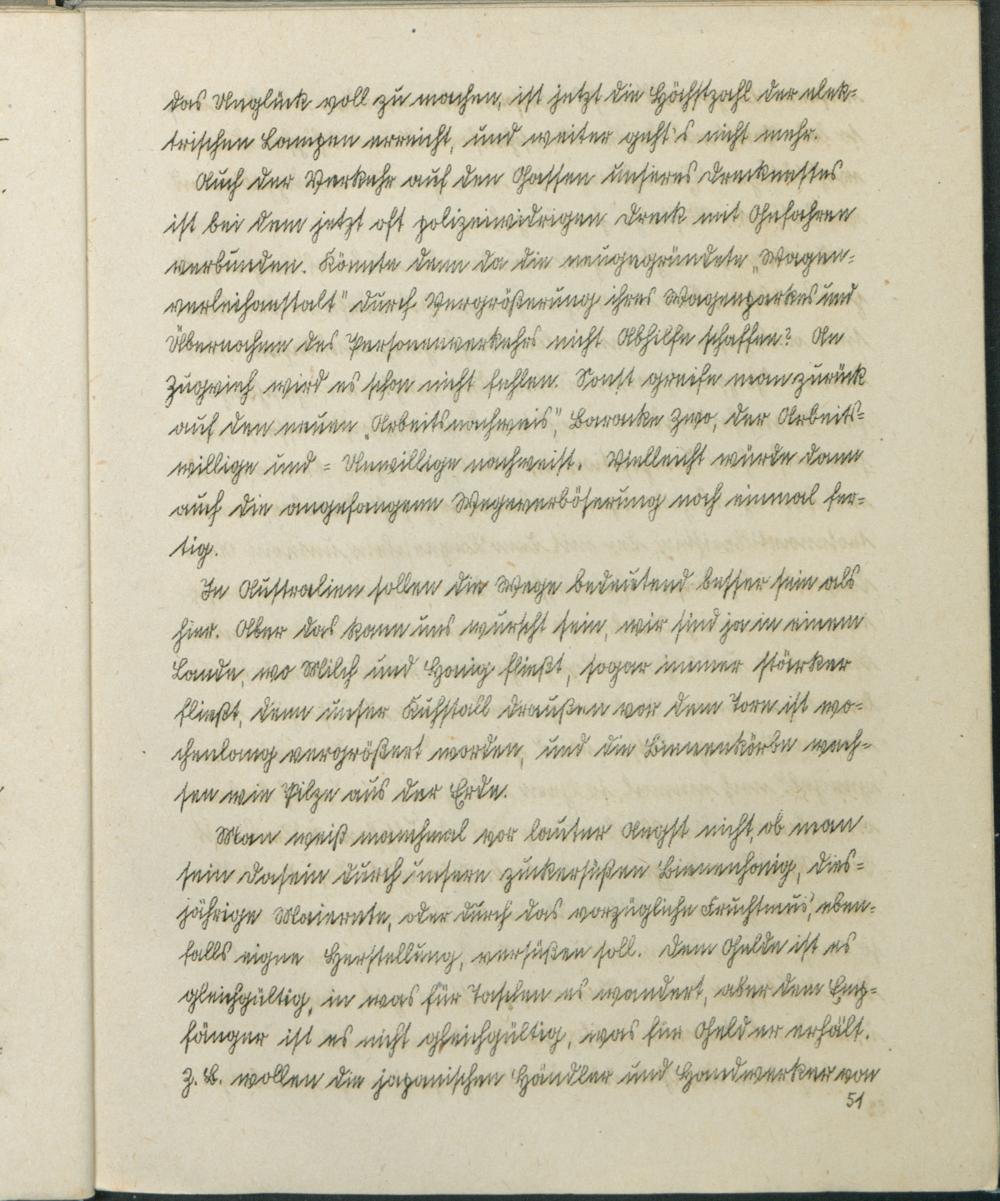 das Unglück voll zu machen, ist jetzt die Höchstzahl der elek-
trischen Lampen erreicht, und weiter geht's nicht mehr.
Auch der Verkehr auf den Gassen unseres Drecknestes
ist bei dem jetzt oft polizeiwidrigen Dreck mit Gefahren
verbunden. Könnte denn da die neugegründete „Wagen-
verleihanstalt" durch Vergrößerung ihres Wagenparkes und
Übernahme des Personenverkehrs nicht Abhilfe schaffen? An
Zugvieh wird es schon nicht fehlen. Sonst greife man zurück
auf den neuen „Arbeitsnachweis", Baracke zwo, der Arbeits-
willige und - Unwillige nachweist. Vielleicht würde dann
auch die angefangene Wegeverböserung noch einmal fer-
tig.
In Australien sollen die Wege bedeutend besser sein als
hier. Aber das kann uns wurscht sein, wir sind ja in einem
Lande, wo Milch und Honig fließt, sogar immer stärker
fließt, denn unser Kuhstall draußen vor dem Tore ist wo-
chenlang vergrößert worden, und die Bienenkörbe wach-
sen wie Pilze aus der Erde.
Man weiß manchmal vor lauter Angst nicht, ob man
sein Dasein durch unsern zuckersüßen Bienenhonig, dies-
jährige Maiernte, oder durch das vorzügliche Fruchtmus, eben-
falls eigne Herstellung, versüßen soll. Dem Gelde ist es
gleichgültig, in was für Taschen es wandert, aber dem Emp-
fänger ist es nicht gleichgültig, was für Geld er erhält.
Z. B. wollen die japanischen Händler und Handwerker von
51